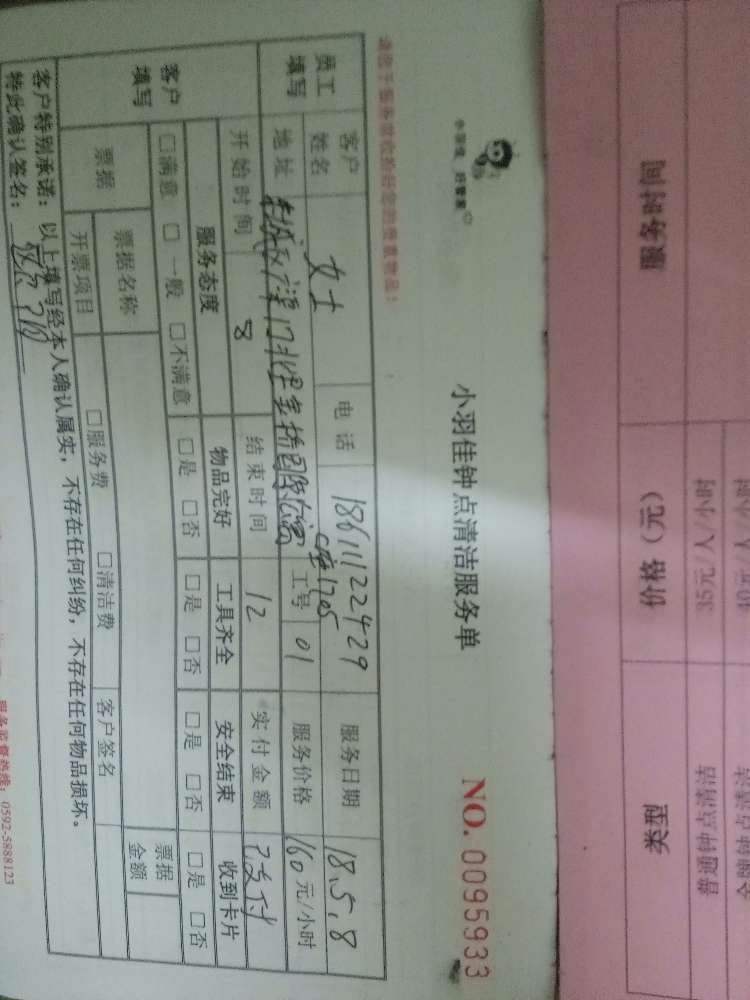 服务时间 价格（元） 类型
35元/人/小时 普通钟点清洁
小羽佳 好管家
小羽佳钟点清洁服务单
NO. 0095933
员工填写
客户姓名 女士 电话 18611122429 服务日期 18.5.8
地址 C座1705 工号 01 服务价格 160元/小时
开始时间 8 结束时间 12 实付金额
客户填写
服务态度 物品完好 工具齐全 安全结束 收到卡片
□满意 □一般 □不满意 □是 □否 □是 □否 □是 □否 □是 □否
票据 票据名称 票据金额
开票项目 □服务费 □清洁费 客户签名
客户特别承诺：以上填写经本人确认属实，不存在任何纠纷，不存在任何物品损坏。
特此确认签名：
服务监督热线：0592-5888123